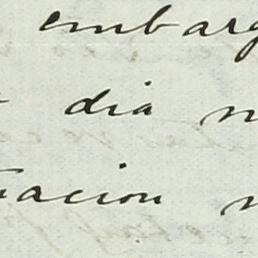 embarg
dia n
uacion n